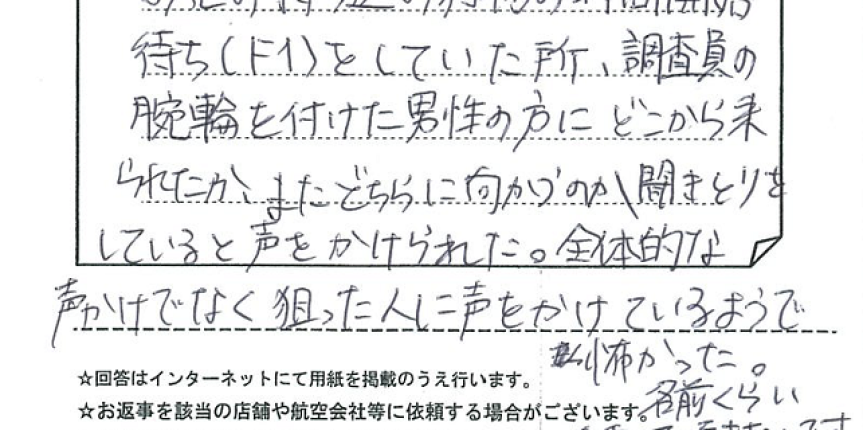 待ち(F1)をしていた所、調査員の
腕輪を付けた男性の方にどこから来
られたか、またどちらに向かうのか聞きとりを
していると声をかけられた。全体的な
声かけでなく狙った人に声をかけているようで
怖かった。
☆回答はインターネットにて用紙を掲載のうえ行います。
名前くらい
☆お返事を該当の店舗や航空会社等に依頼する場合がございます。